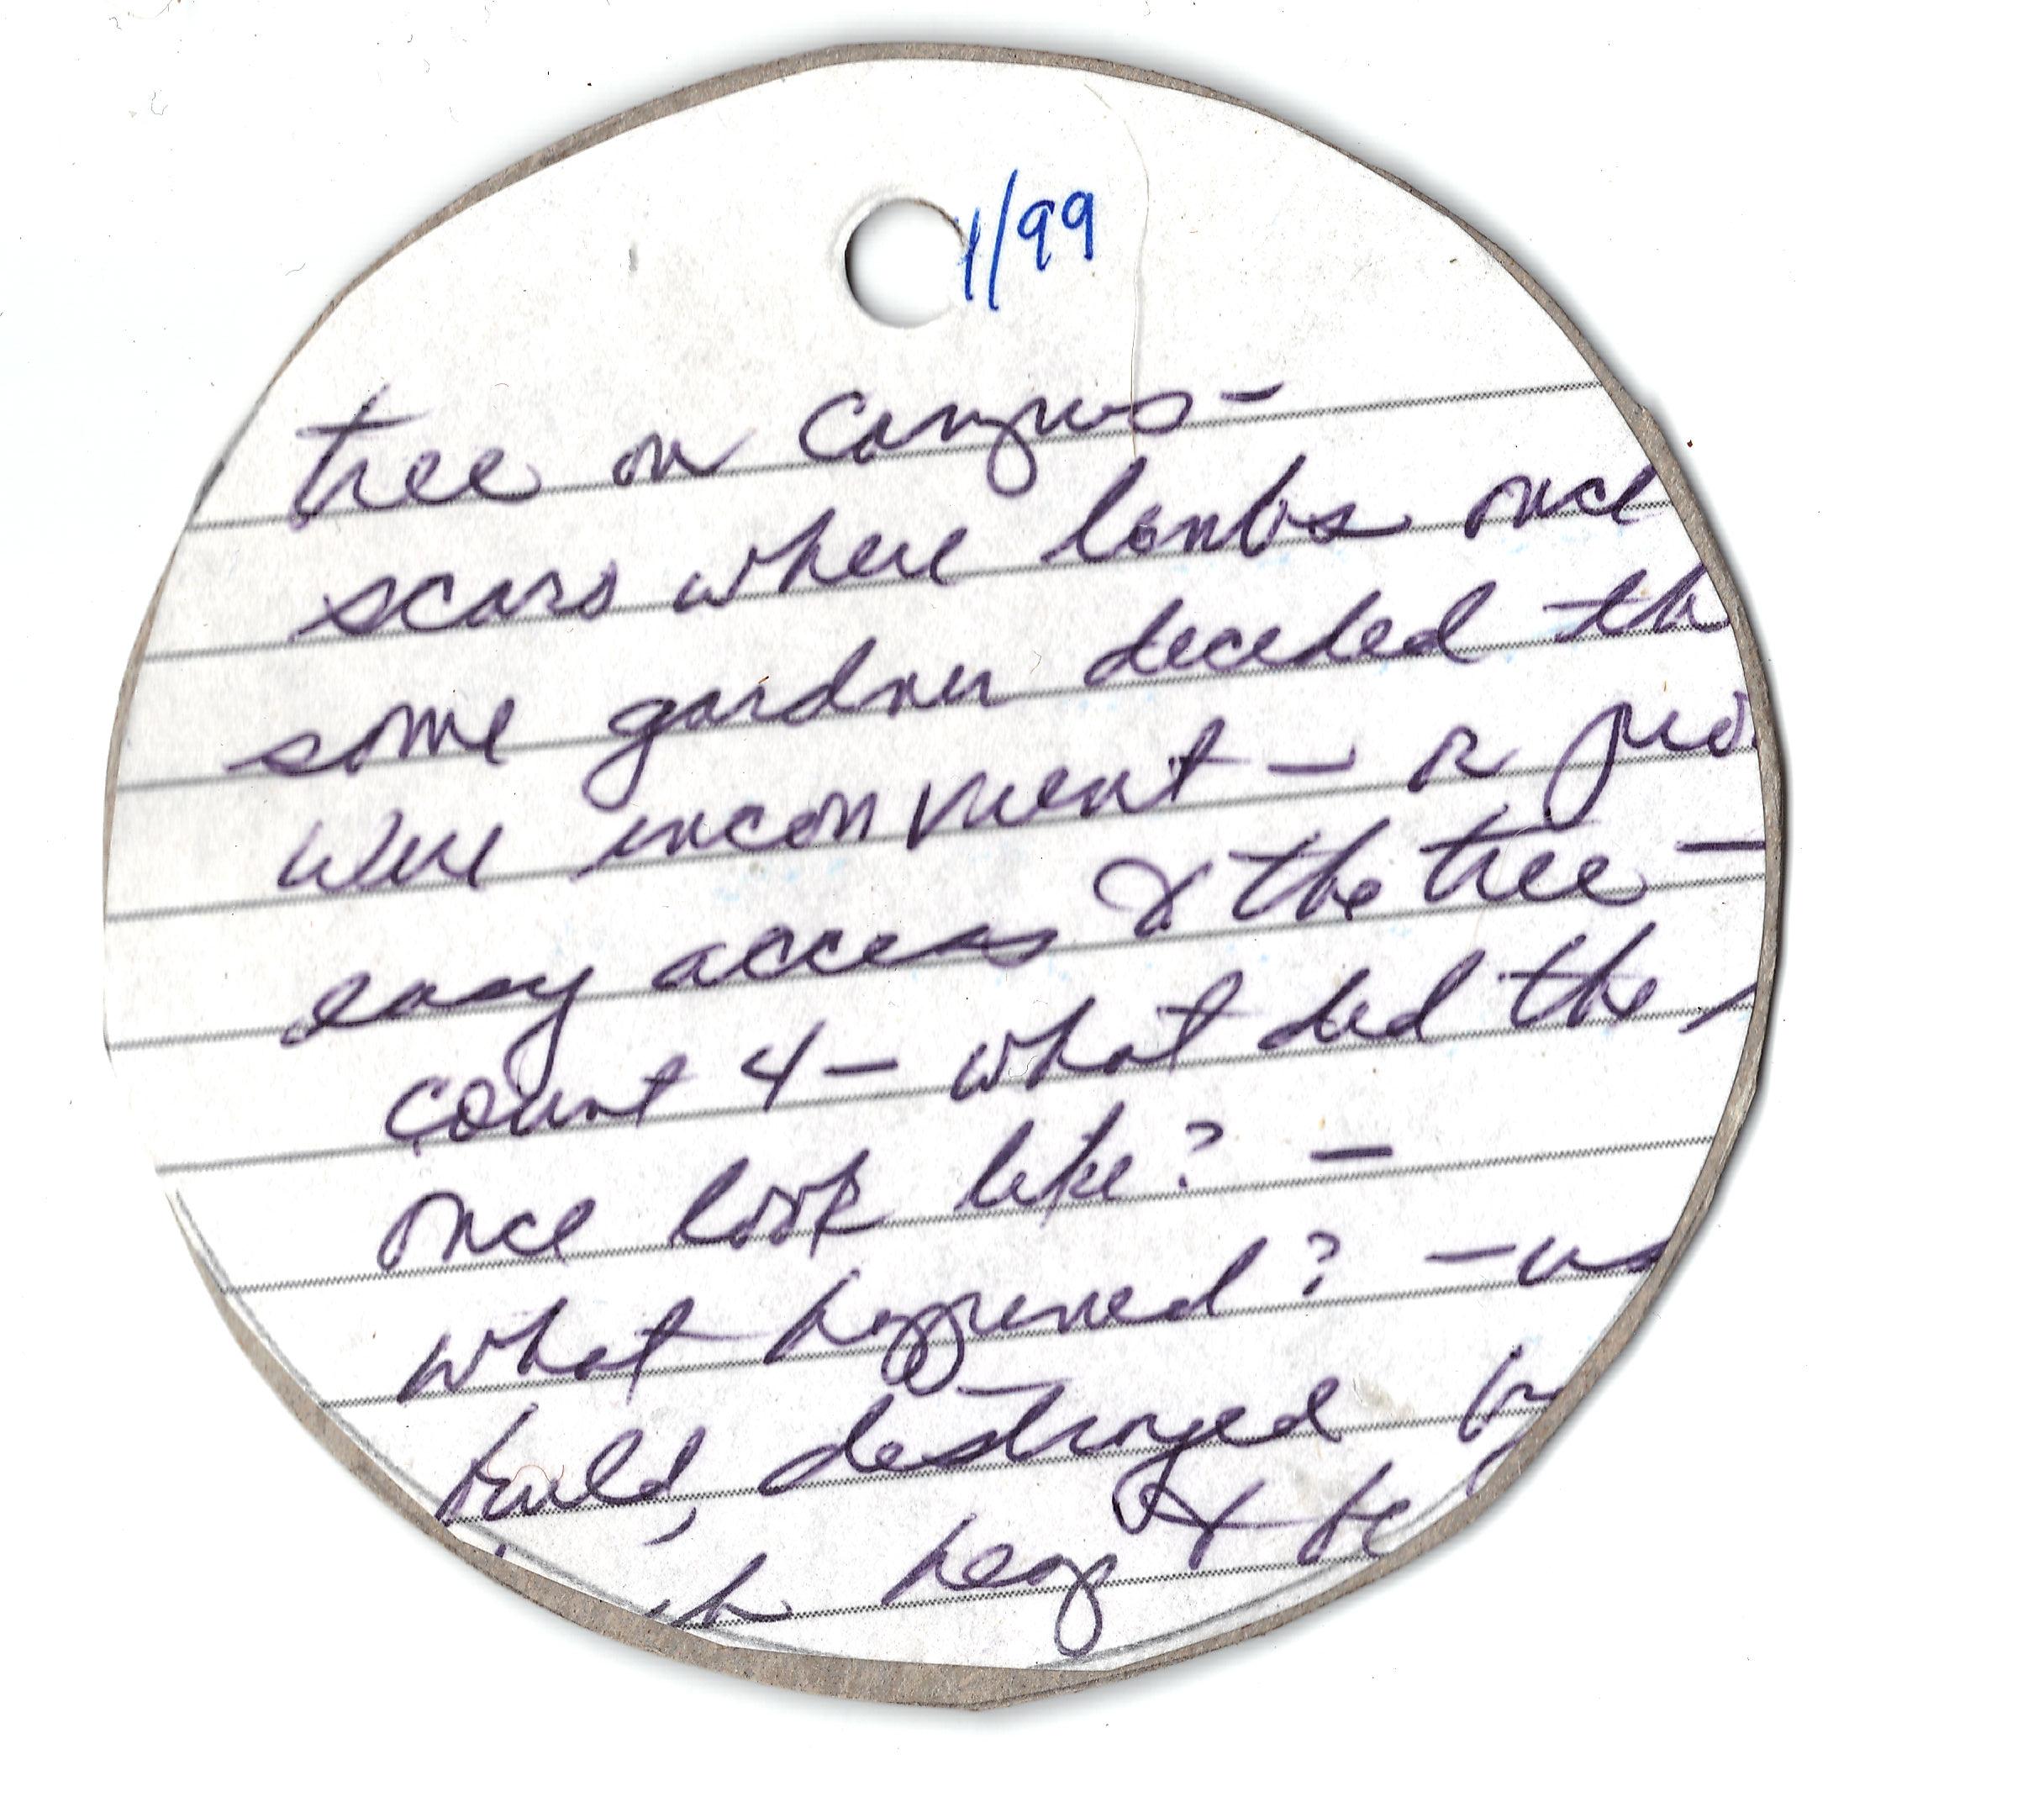 1/99
tree on campus –
scars where limbs once
some gardner decided th
were inconvnient – or pro
easy access to the tree –
count 4 – what did the
once look like? –
what happened? – was
build, destroyed by
heap + be